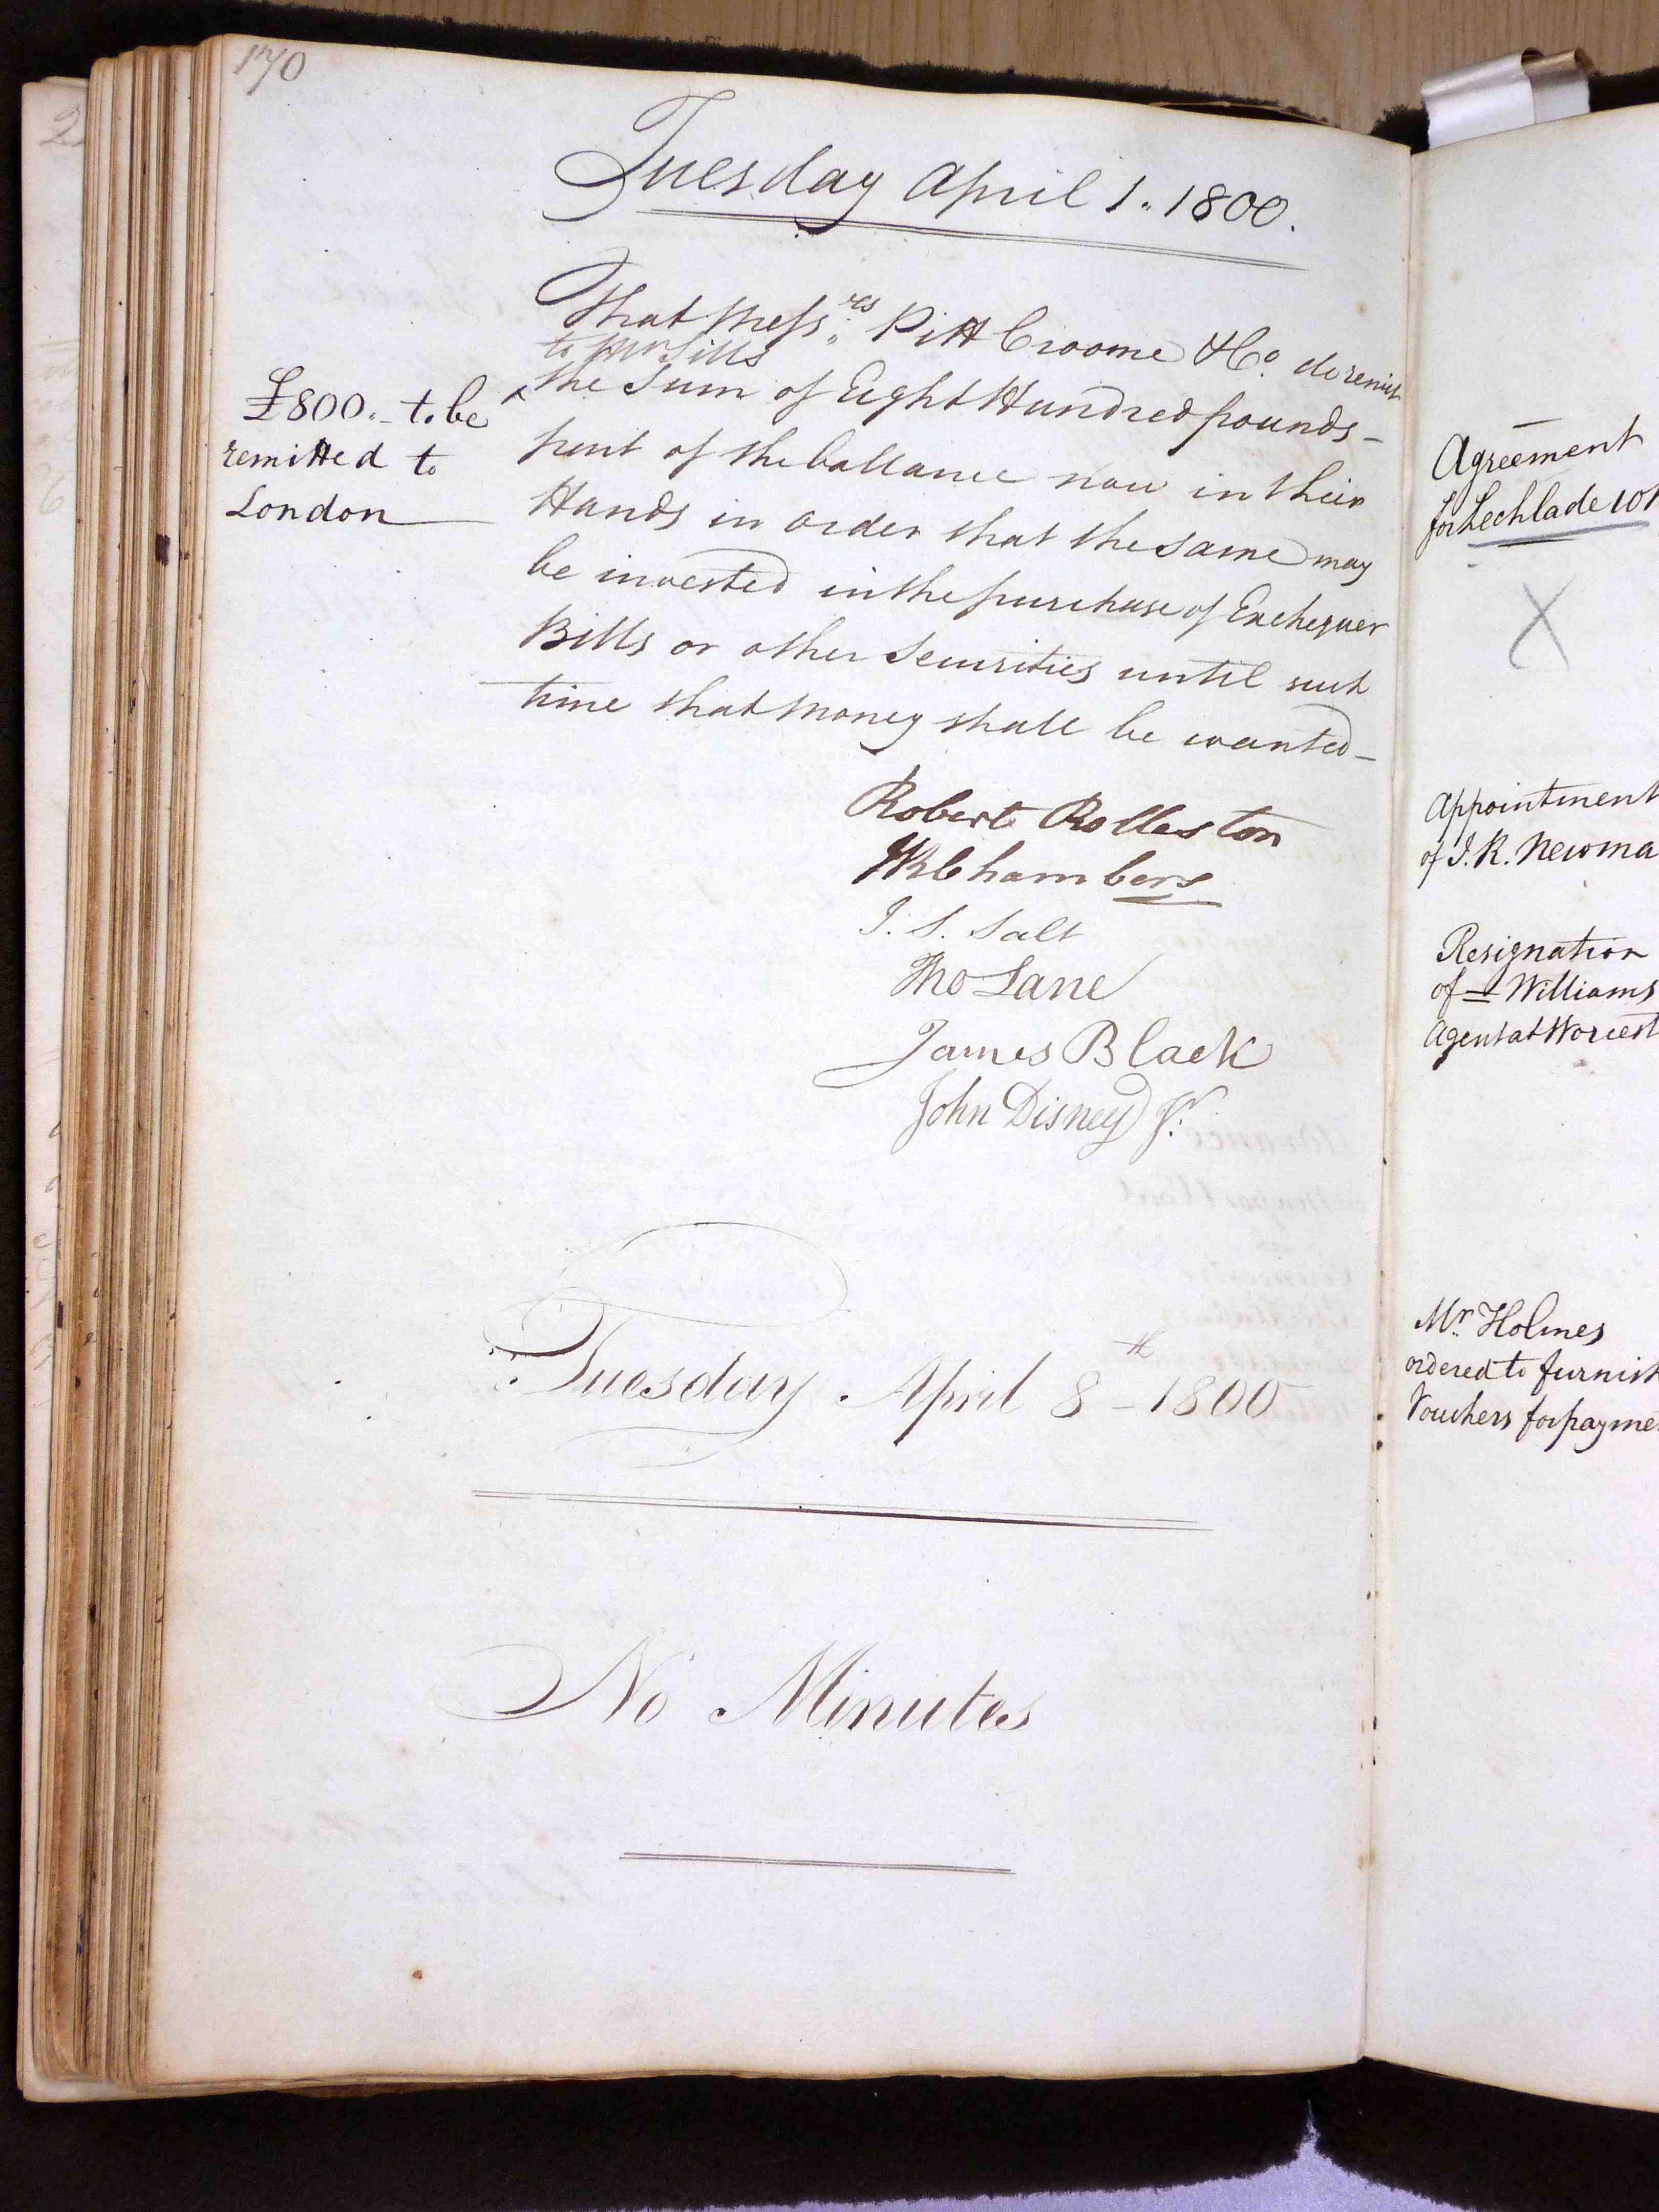 170
Tuesday April 1. 1800.
That Mess.rs Pitt Croome & Co. do remit
to Mr Sills
£800.- to be
remitted to
London
the Sum of Eight Hundred pounds -
part of the ballance now in their
Hands in order that the same may
be invested in the purchase of Exchequer
Bills or other Securities until such
time that Money shall be wanted -
Robert Rolleston
Chambers
J. S. Salt
Tho Lane
James Black
John Disney Jr.
Tuesday April 8th - 1800
No Minutes
Agreement
for Lechlade
X
Appointment
of J. R. Newma
Resignation
of - Williams
Agent at Worcest
Mr. Holmes
ordered to furnish
Vouchers for payme